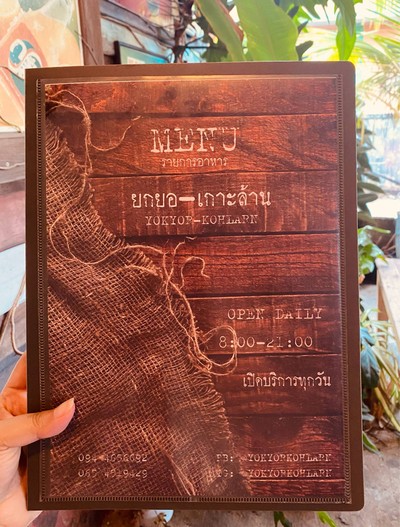 MENU
รายการอาหาร
ยกยอ-เกาะล้าน
YOKYOR-KOHLARN
OPEN DAILY
8:00-21:00
เปิดบริการทุกวัน
FB: YOKYORKOHLARN
IG: YOKYORKOHLARN